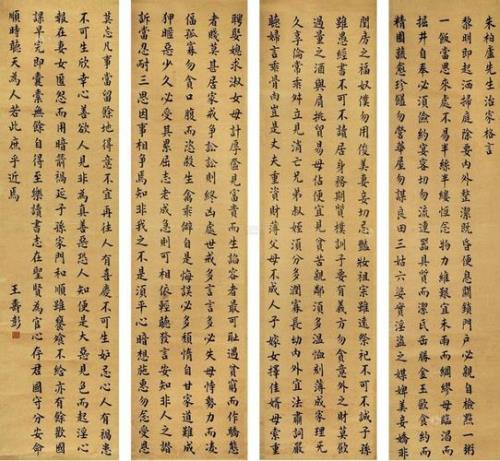 朱柏盧先生治家格言
黎明即起洒掃庭除要內外整潔既昏便息關鎖門户必親自檢點一粥
一飯當思來處不易半絲半縷恆念物力維艱宜未雨而綢繆毋臨渴而
掘井自奉必須儉約宴客切勿流連器具質而潔瓦缶勝金玉飲食約而
精園蔬愈珍饈勿營華屋勿謀良田三姑六婆實淫盜之媒婢美妾嬌非
閨房之福奴僕勿用俊美妻妾切忌艷妝祖宗雖遠祭祀不可不誠子孫
雖愚經書不可不讀居身務期質樸訓子要有義方勿貪意外之財莫飲
過量之酒與肩挑貿易毋佔便宜見貧苦親鄰須多溫恤刻薄成家理無
久享倫常乖舛立見消亡兄弟叔姪須分多潤寡長幼內外宜法肅詞嚴
聽婦言乖骨肉豈是丈夫重資財薄父母不成人子嫁女擇佳婿毋索重
聘娶媳求淑女毋計厚奩見富貴而生諂容者最可恥遇貧窮而作驕態
者賤莫甚居家戒爭訟訟則終凶處世戒多言言多必失毋恃勢力而凌
逼孤寡勿貪口腹而恣殺生禽乖僻自是悔誤必多頹惰自甘家道難成
狎暱惡少久必受其累屈志老成急則可相依輕聽發言安知非人之譖
訴當忍耐三思因事相爭焉知非我之不是須平心暗想施惠勿念受恩
莫忘凡事當留餘地得意不宜再往人有喜慶不可生妒忌心人有禍患
不可生欣幸心善欲人見非為真善惡恐人知便是大惡見色而起淫心
報在妻女匿怨而用暗箭禍延子孫家門和順雖饔飧不給亦有餘歡國
課早完即囊橐無餘自得至樂讀書志在聖賢為官心存君國守分安命
順時聽天為人若此庶乎近焉
王壽彭